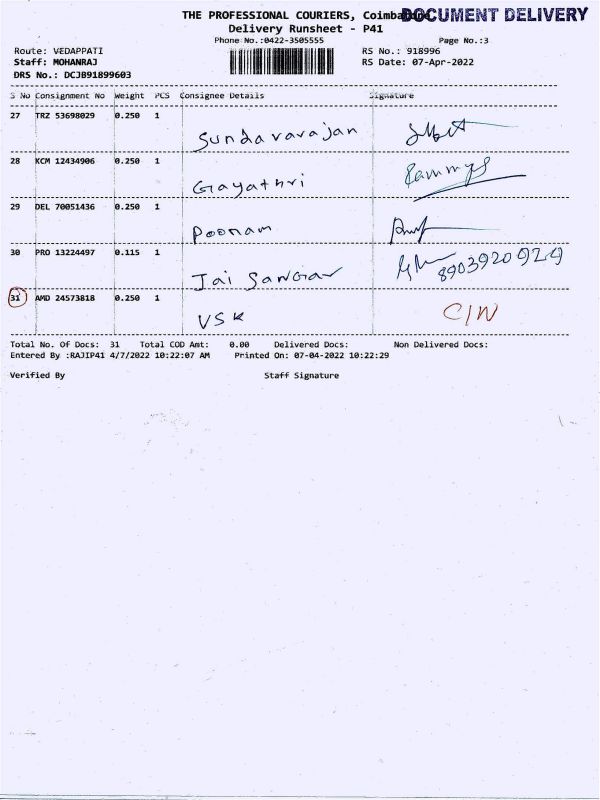 THE PROFESSIONAL COURIERS, Coimbatore
DOCUMENT DELIVERY
Delivery Runsheet - P41
Phone No.:0422-3505555
Page No.:3
Route: VEDAPPATI
RS No.: 918996
Staff: MOHANRAJ
RS Date: 07-Apr-2022
DRS No.: DCJB91899603
S No Consignment No Weight PCS Consignee Details Signature
27 TRZ 53698029 0.250 1 Sundavarajan
28 KCM 12434906 0.250 1 Gayathri
29 DEL 70051436 0.250 1 Poonam
30 PRO 13224497 0.115 1 Jai Sankar 8903920929
31 AMD 24573818 0.250 1 VSK C/W
Total No. Of Docs: 31 Total COD Amt: 0.00 Delivered Docs: Non Delivered Docs:
Entered By :RAJIP41 4/7/2022 10:22:07 AM Printed On: 07-04-2022 10:22:29
Verified By Staff Signature